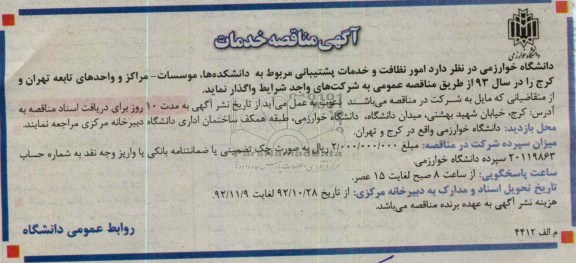 آگهی مناقصه خدمات
دانشگاه خوارزمی
دانشگاه خوارزمی در نظر دارد امور نظافت و خدمات پشتیبانی مربوط به دانشکده‌ها، موسسات- مراکز و واحدهای تابعه تهران و
کرج را در سال ۹۳ از طریق مناقصه عمومی به شرکت‌های واجد شرایط واگذار نماید.
از متقاضیانی که مایل به شرکت در مناقصه می‌باشند دعوت به عمل می‌آید از تاریخ نشر آگهی به مدت ۱۰ روز برای دریافت اسناد مناقصه به
آدرس: کرج، خیابان شهید بهشتی، میدان دانشگاه، دانشگاه خوارزمی، طبقه همکف ساختمان اداری دانشگاه دبیرخانه مرکزی مراجعه نمایند.
محل بازدید: دانشگاه خوارزمی واقع در کرج و تهران.
میزان سپرده شرکت در مناقصه: مبلغ ۲/۰۰۰/۰۰۰/۰۰۰ ریال به صورت چک تضمینی یا ضمانتنامه بانکی یا واریز وجه نقد به شماره حساب
۲۰۱۱۹۸۶۳ سپرده دانشگاه خوارزمی.
ساعت پاسخگویی: از ساعت ۸ صبح لغایت ۱۵ عصر.
تاریخ تحویل اسناد و مدارک به دبیرخانه مرکزی: از تاریخ ۹۲/۱۰/۲۸ لغایت ۹۲/۱۱/۹.
هزینه نشر آگهی به عهده برنده مناقصه می‌باشد.
روابط عمومی دانشگاه
م الف ۴۴۱۲